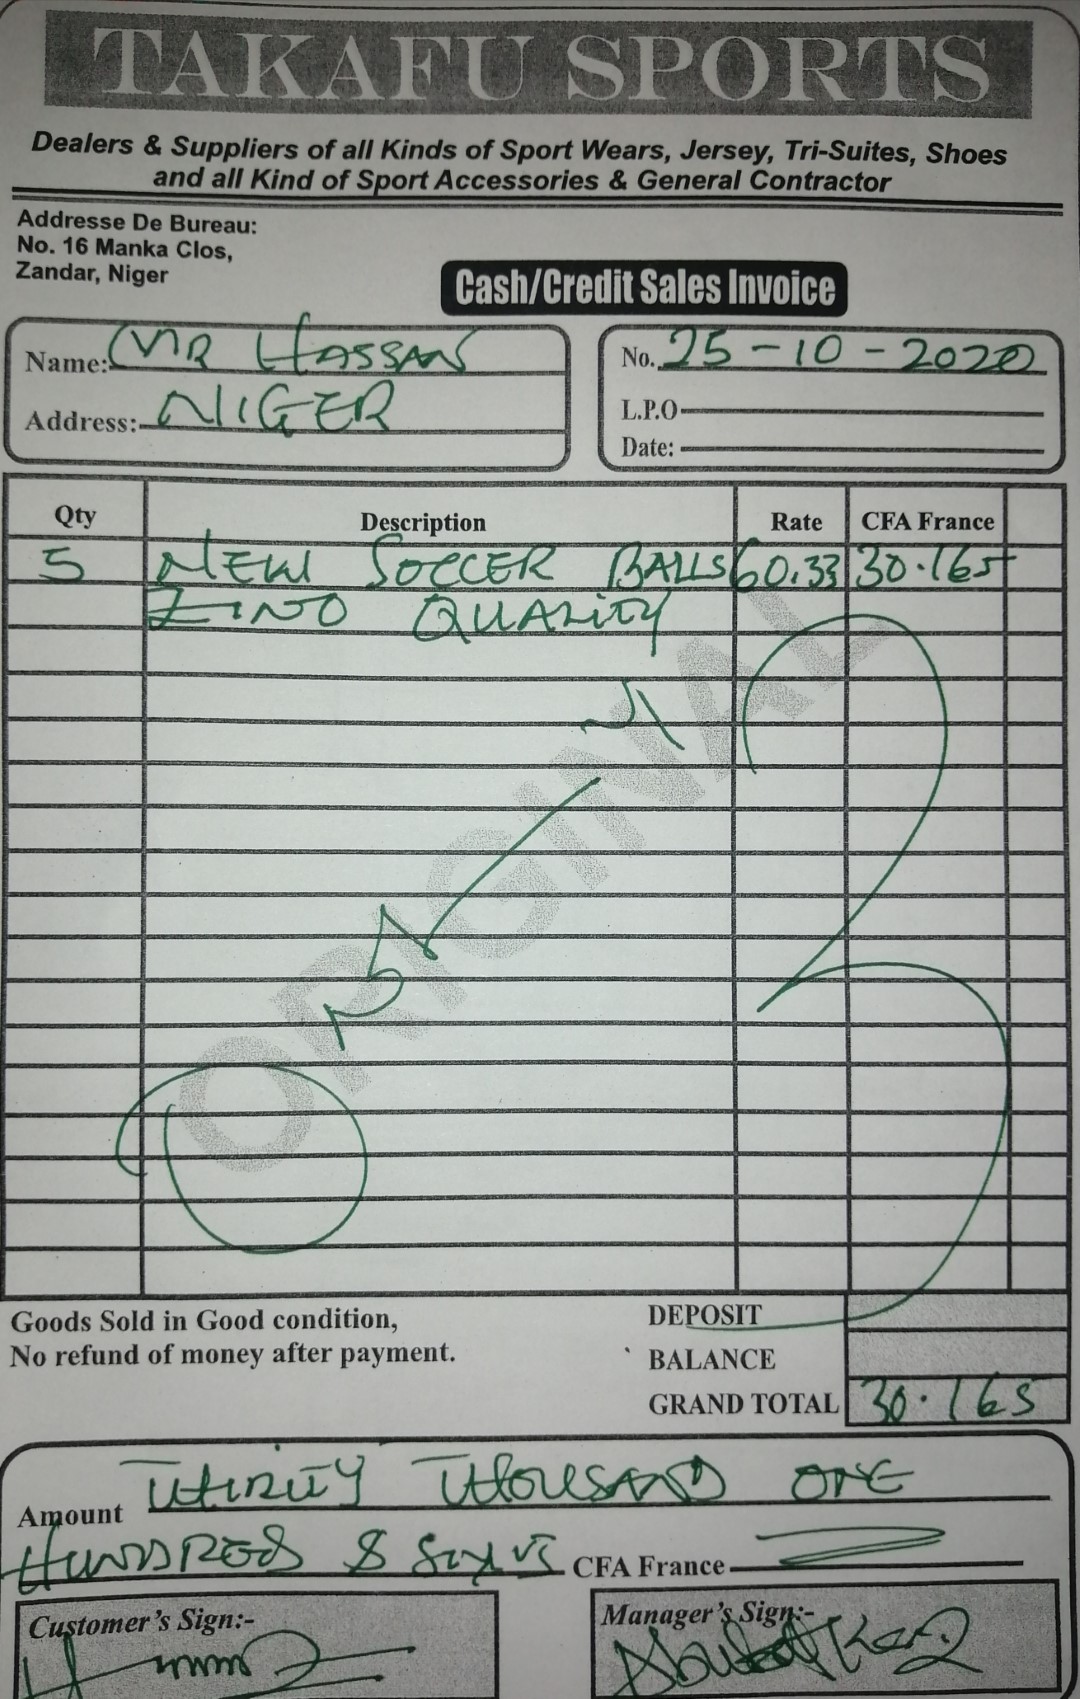 TAKAFU SPORTS
Dealers & Suppliers of all Kinds of Sport Wears, Jersey, Tri-Suites, Shoes
and all Kind of Sport Accessories & General Contractor
Addresse De Bureau:
No. 16 Manka Clos,
Zandar, Niger
Cash/Credit Sales Invoice
Name: MR HASSAN
Address: NIGER
No. 25-10-2020
L.P.O
Date:
Qty Description Rate CFA France
5 NEW SOCCER BALLS 60.33 30.165
QUALITY
ORIGINAL
Goods Sold in Good condition,
No refund of money after payment.
DEPOSIT
BALANCE
GRAND TOTAL 30.165
Amount THIRTY THOUSAND ONE
HUNDRED & CFA France
Customer's Sign:-
Manager's Sign:-